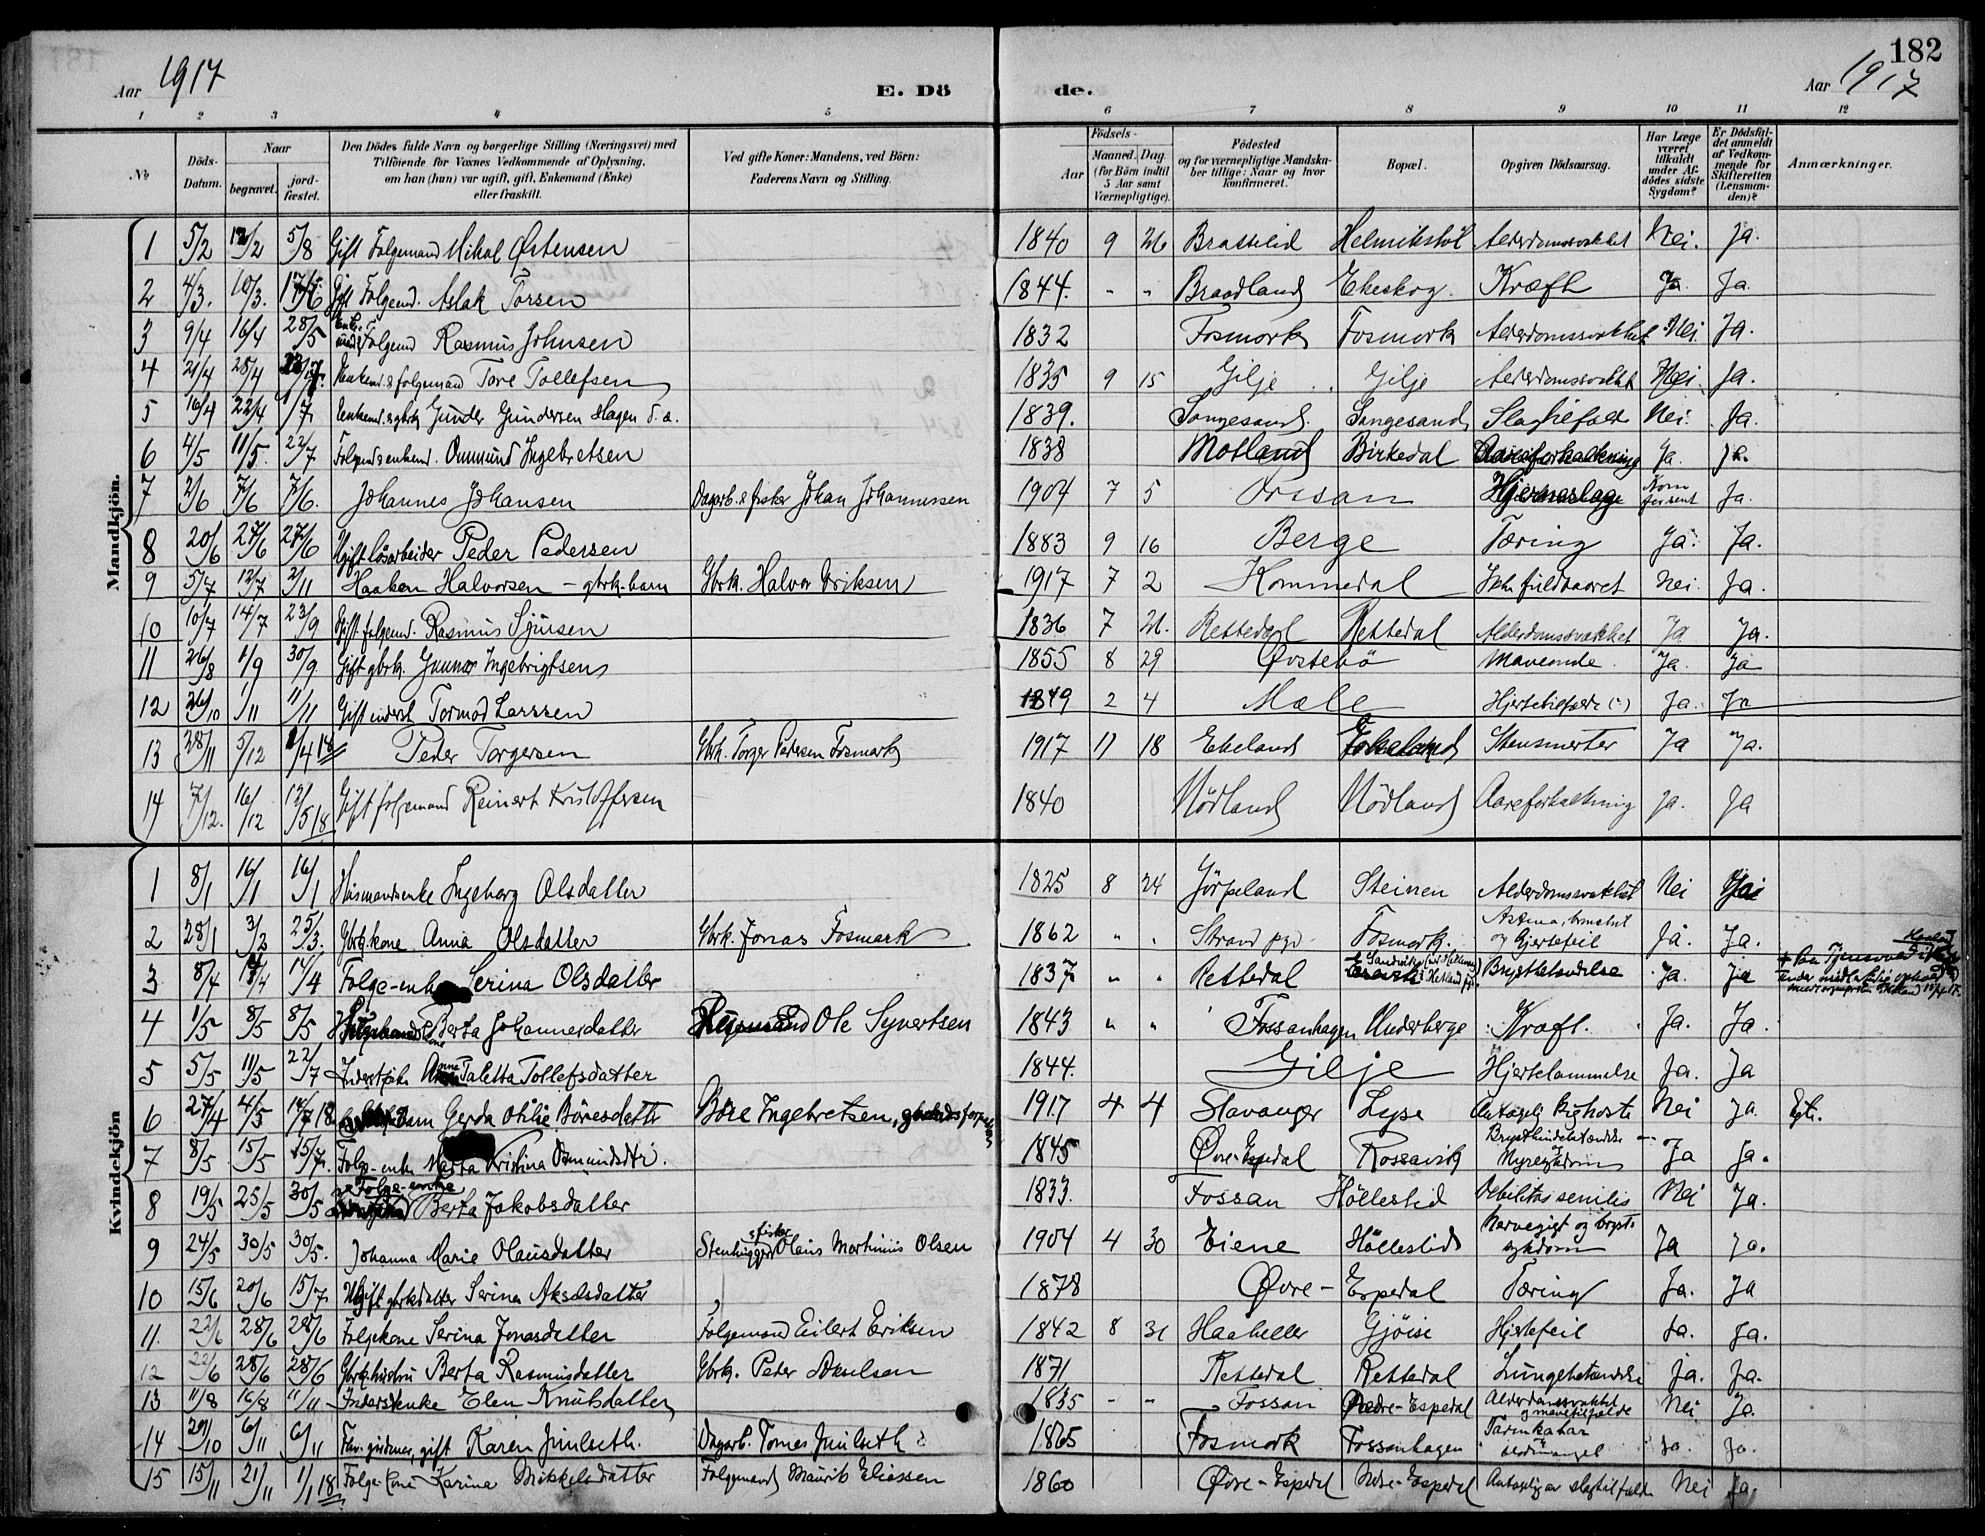 182
Aar 1917
E. Dö
de.
Aar 1917
1 2 3 4 5 6 7 8 9 10 11 12
No.
Döds-Datum.
Naar
begravet.
jord-fæstet.
Den Dödes fulde Navn og borgerlige Stilling (Næringsvei) med
Tilföiende for Voxnes Vedkommende af Oplysning,
om han (hun) var ugift, gift, Enkemand (Enke)
eller fraskilt.
Ved gifte Koner: Mandens, ved Börn:
Faderens Navn og Stilling.
Födsels-
Aar
Maaned. Dag.
(for Börn indtil
5 Aar samt
Værnepligtige).
Födested
og for værnepligtige Mandska-
ber tillige: Naar og hvor
konfirmeret.
Bopæl.
Opgiven Dödsaarsag.
Har Læge
været
tilkaldt
under Af-
dödes sidste
Sygdom?
Er Dödsfal-
det anmeldt
af Vedkom-
mende for
Skifteretten
(Lensman-
den)?
Anmærkninger.
Mandkjön.
1 5/2 12/2 5/8 Gift Folgemand Mikal Østensen 1840 9 26 Brattelid Helmikstöl Alderdomssvakhet Nei. Ja.
2 4/3. 10/3. 17/6 Gift Folgemd. Aslak Torsen 1844. " " Braadland Ekeskog. Kræft Ja. Ja.
3 9/4 16/4 28/5 Folgemd Rasmus Johnsen 1832 Fosmork Fosmork Alderdomssvakhet Nei. Ja.
4 21/4 28/4 Enkemd. & folgemand Tore Tollefsen 1835 9 15 Gilje Gilje Alderdomssvakhet Nei. Ja.
5 16/4 22/4 1/7 Enkemd. & gbrk Gunder Gundersen Hagen d. æ. 1839. Songesand. Songesand Slagtilfælde Nei. Ja.
6 4/5 11/5. 22/7 Folgemd enkemd. Ommund Ingebretsen 1838 Motland Birkedal Aareforkalkning Ja. Ja.
7 2/6 7/6 7/6. Johannes Johansen Dagarb. & fisker Johan Johannessen 1904 7 5 Fossan Hjerneslag Kom for sent Ja.
8 20/6 27/6 27/6 Ugift lösarbeider Peder Pedersen 1883 9 16 Berge Tæring Ja. Ja.
9 5/7 12/7 2/11 Haaken Halvorsen - gbrk-barn Gbrk. Halvor Eriksen 1917 7 2 Kommedal Ikke fuldbaaret Nei. Ja.
10 10/7 14/7 23/9 Gift folgemd. Rasmus Sjursen 1836 7 26. Rettedal Rettedal Alderdomssvakhet Ja Ja.
11 26/8 1/9 30/9 Gift gbrk. Gunnar Ingebrigtsen 1855 8 29 Övstebö Maveonde. Ja. Ja
12 26/10 1/11 11/11 Gift inderst Tormod Larssen 1849 2 4 Mæle Hjertetilfælde (?) Ja. Ja
13 28/11 5/12 1/4 18 Peder Torgersen Gbrk. Torger Pedersen Fosmark 1917 11 18 Ekeland Ekeland Stensmerter Ja Ja.
14 7/12. 16/12 12/5 18 Gift folgemand Reinert Kristoffersen 1840 Mödland Mödland Aareforkalkning Ja. Ja
Kvindekjön
1 8/1 16/1 16/1 Husmandsenke Ingeborg Olsdatter 1825 8 24 Jörpeland Steinen Alderdomssvakhet Nei Nei
2 28/1 3/2 25/3. Gbrk.kone Anna Olsdatter Gbrk. Jonas Fosmark 1862 " " Strand pgd. Fosmork. Astma, bronchit og Hjertefeil Ja. Ja.
3 8/4 17/4 Folge-enke Serina Olsdatter 1837 " " Rettedal Brystbetændelse Ja. Ja
4 1/5 8/5 8/5 kone Berta Johannesdatter Ole Syvertsen 1843 " " Fossanhagen Underberge Kræft. Ja. Ja.
5 5/5 11/5 22/7 Anne Taletta Tollefsdatter 1844. Gilje Hjertelammelse Ja. Ja
6 27/4 4/5 14/7 18 barn Gerda Otilie Böresdatter Böre Ingebretsen, 1917 4 4 Stavanger Lyse Antagelig Kighoste Nei Ja. Egte.
7 8/5 15/5 15/7. Folge-enke Marta Kristina Osmundsdtr. 1845 Övre-Espedal Rossavik Brysthindebetændelse og Nyresykdom Ja Ja.
8 19/5 25/5 30/5 Folge-enke Berta Jakobsdatter 1833. Fossan Höllestid Debilitas senilis Nei Ja.
9 24/5 30/5 30/5. Johanna Marie Olausdatter Stenhugger & fisker Olaus Martinius Olsen 1904 4 30 Eiene Höllestid Nervegigt og bryst-sykdom Ja Ja.
10 15/6 20/6 15/7 Ugift gbrkdatter Serina Akselsdatter 1878 Övre-Espedal Tæring Ja. Ja
11. 22/6 28/6 28/6 Folgekone Serina Jonasdatter Folgemand Eilert Eriksen 1842 8 31 Haaheller Gjöise Hjertefeil Ja. Ja.
12 22/6 28/6 28/6 Gbrkhustru Berta Rasmusdatter Gbrk. Peter Paulsen 1871 Rettedal Rettedal Lungebetændelse Ja. Ja.
13 11/8 16/8 11/11 Inderstenke Elen Knutsdatter 1835 " " Fossan Nedre-Espedal Alderdomssvakhet og mavetilfælde Nei Ja.
14 29/10 6/11 6/11 gift Karen Juulseth. Dagarb. Tomas Juulseth 1865 Fosmork Fossanhagen Tarmkatar og blodmangel Ja. Ja.
15 15/11 21/11 1/1 18 Folge kone Karina Mikkelsdatter Folgemand Maurits Eliassen 1860 Övre-Espedal Nedre-Espedal Antagelig av slagtilfælde Nei Ja.